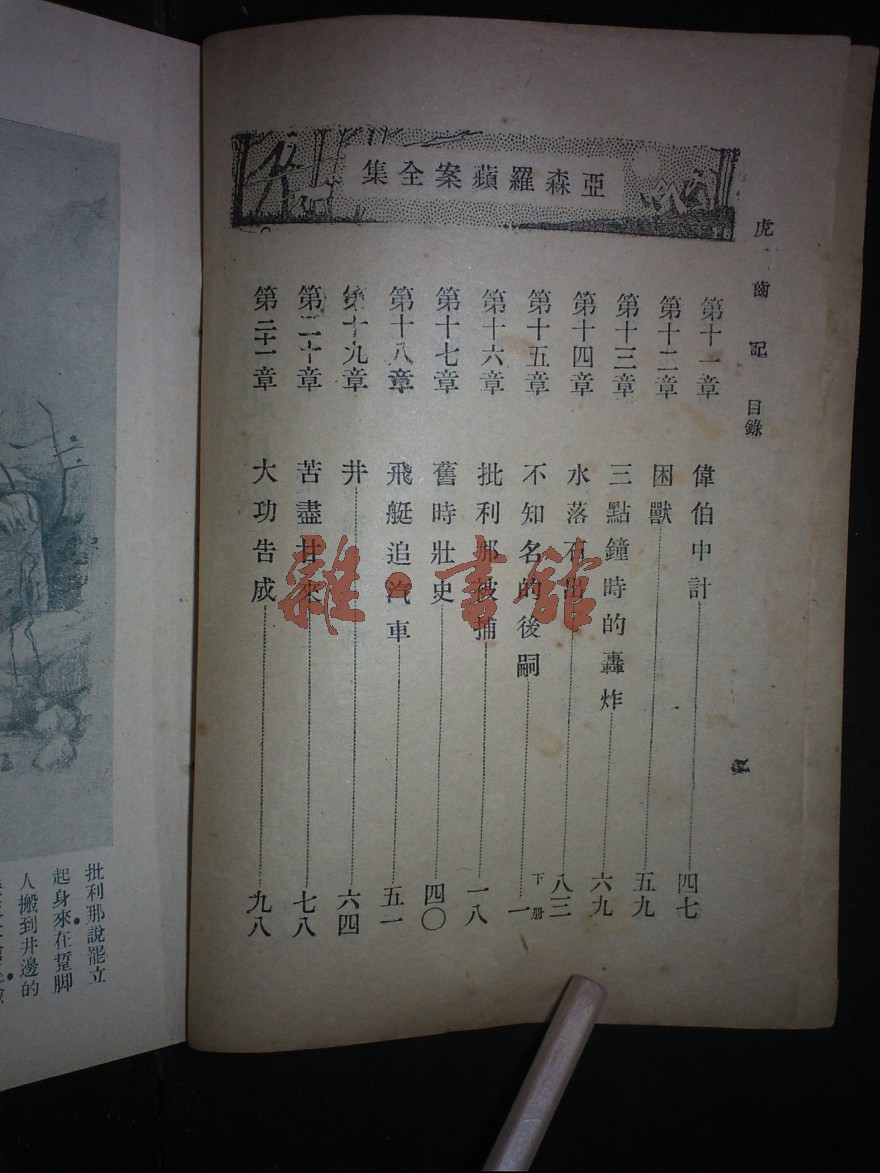 亞森羅蘋案全集
虎齒記 目錄
第十一章 偉伯中計 四七
第十二章 困獸 五九
第十三章 三點鐘時的轟炸 六九
第十四章 水落石出 八三
第十五章 不知名的後嗣 下册 一
第十六章 批利那被捕 一八
第十七章 舊時壯史 四〇
第十八章 飛艇追汽車 五一
第十九章 井 六四
第二十章 苦盡甘來 七八
第二十一章 大功告成 九八
雜·書館
批利那說罷立
起身來在躄脚
人搬到井邊的